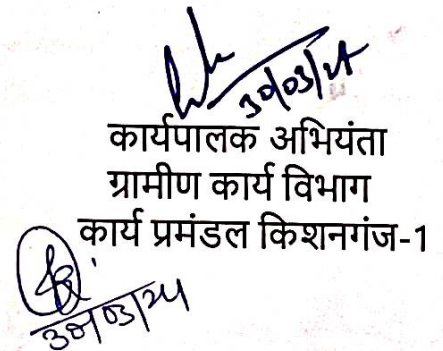 30/03/24
कार्यपालक अभियंता
ग्रामीण कार्य विभाग
कार्य प्रमंडल किशनगंज-1
30/03/24